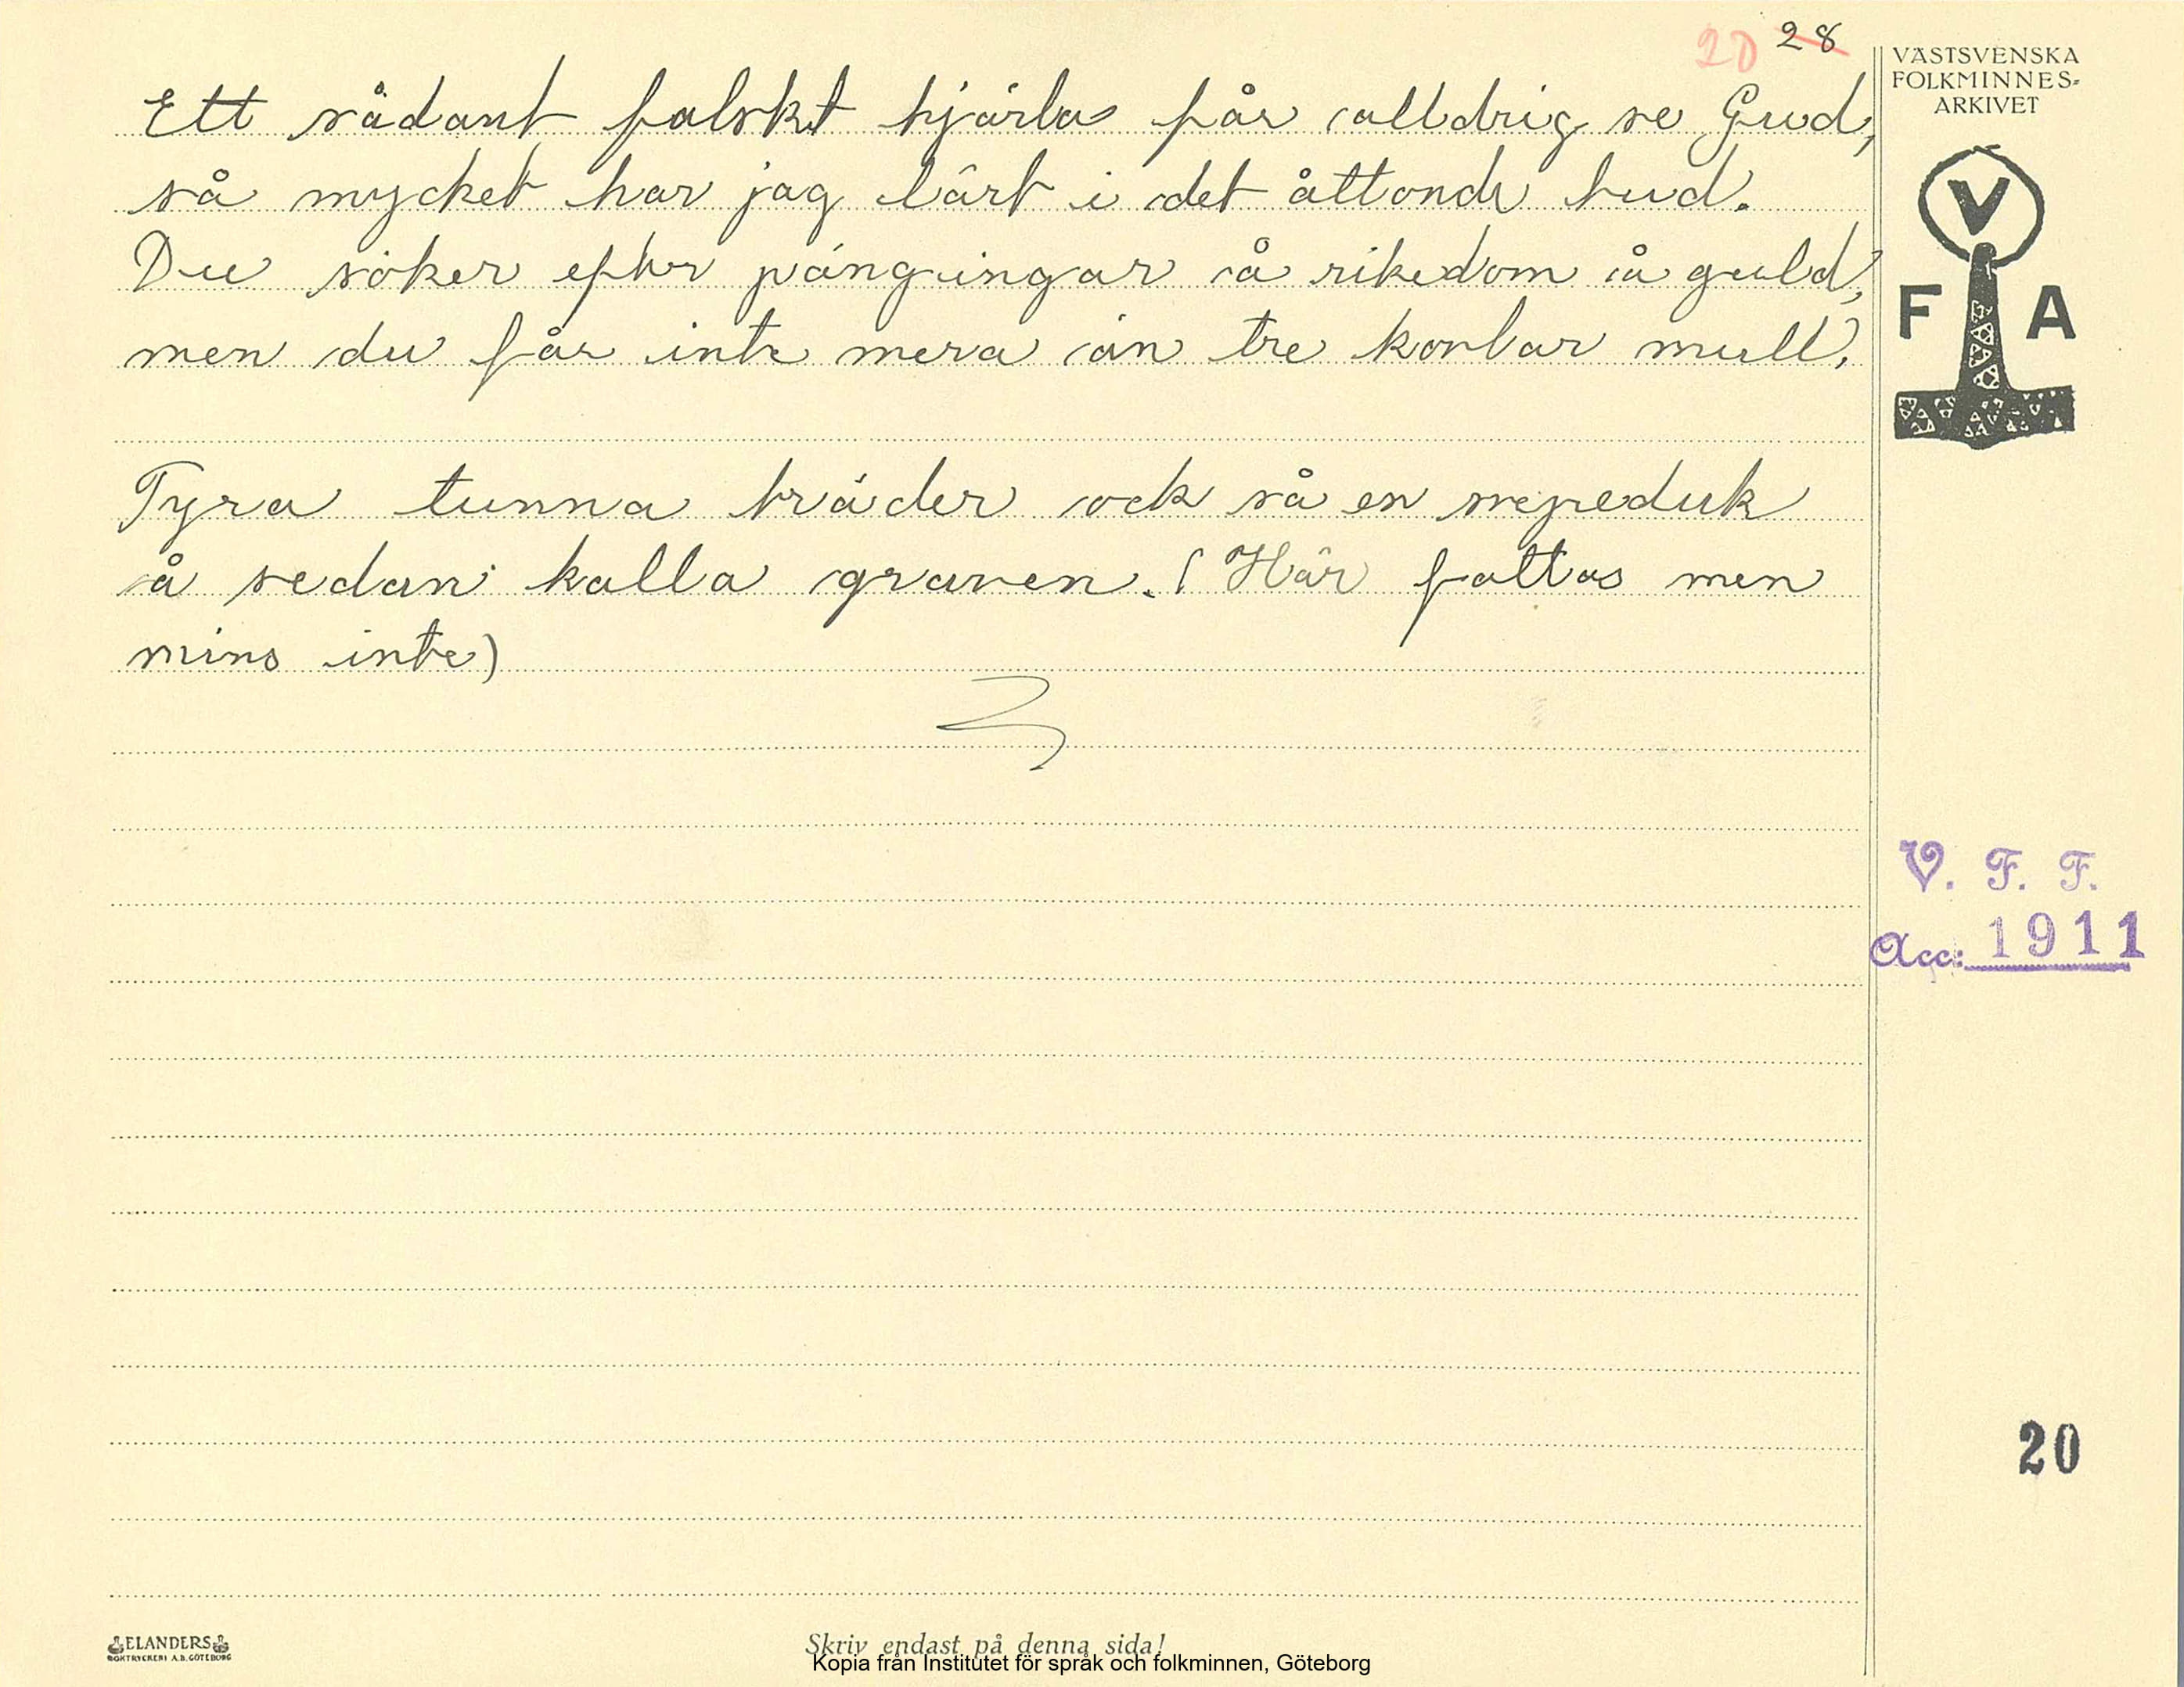 20 28
VÄSTSVENSKA
FOLKMINNES-
ARKIVET
V
F A
Ett sådant falskt hjärta får alldrig se Gud,
så mycket har jag lärt i det åttonde bud.
Du söker efter pängingar å rikedom å guld,
men du får inte mera än tre korbar mull.
Fyra tunna bräder ock så en svepeduk
å sedan kalla graven. (Här fattas men
mins inte)
V. F. F.
Acc: 1911
20
ELANDERS
BOKTRYCKERI A.B. GÖTEBORG
Skriv endast på denna sida!
Kopia från Institutet för språk och folkminnen, Göteborg